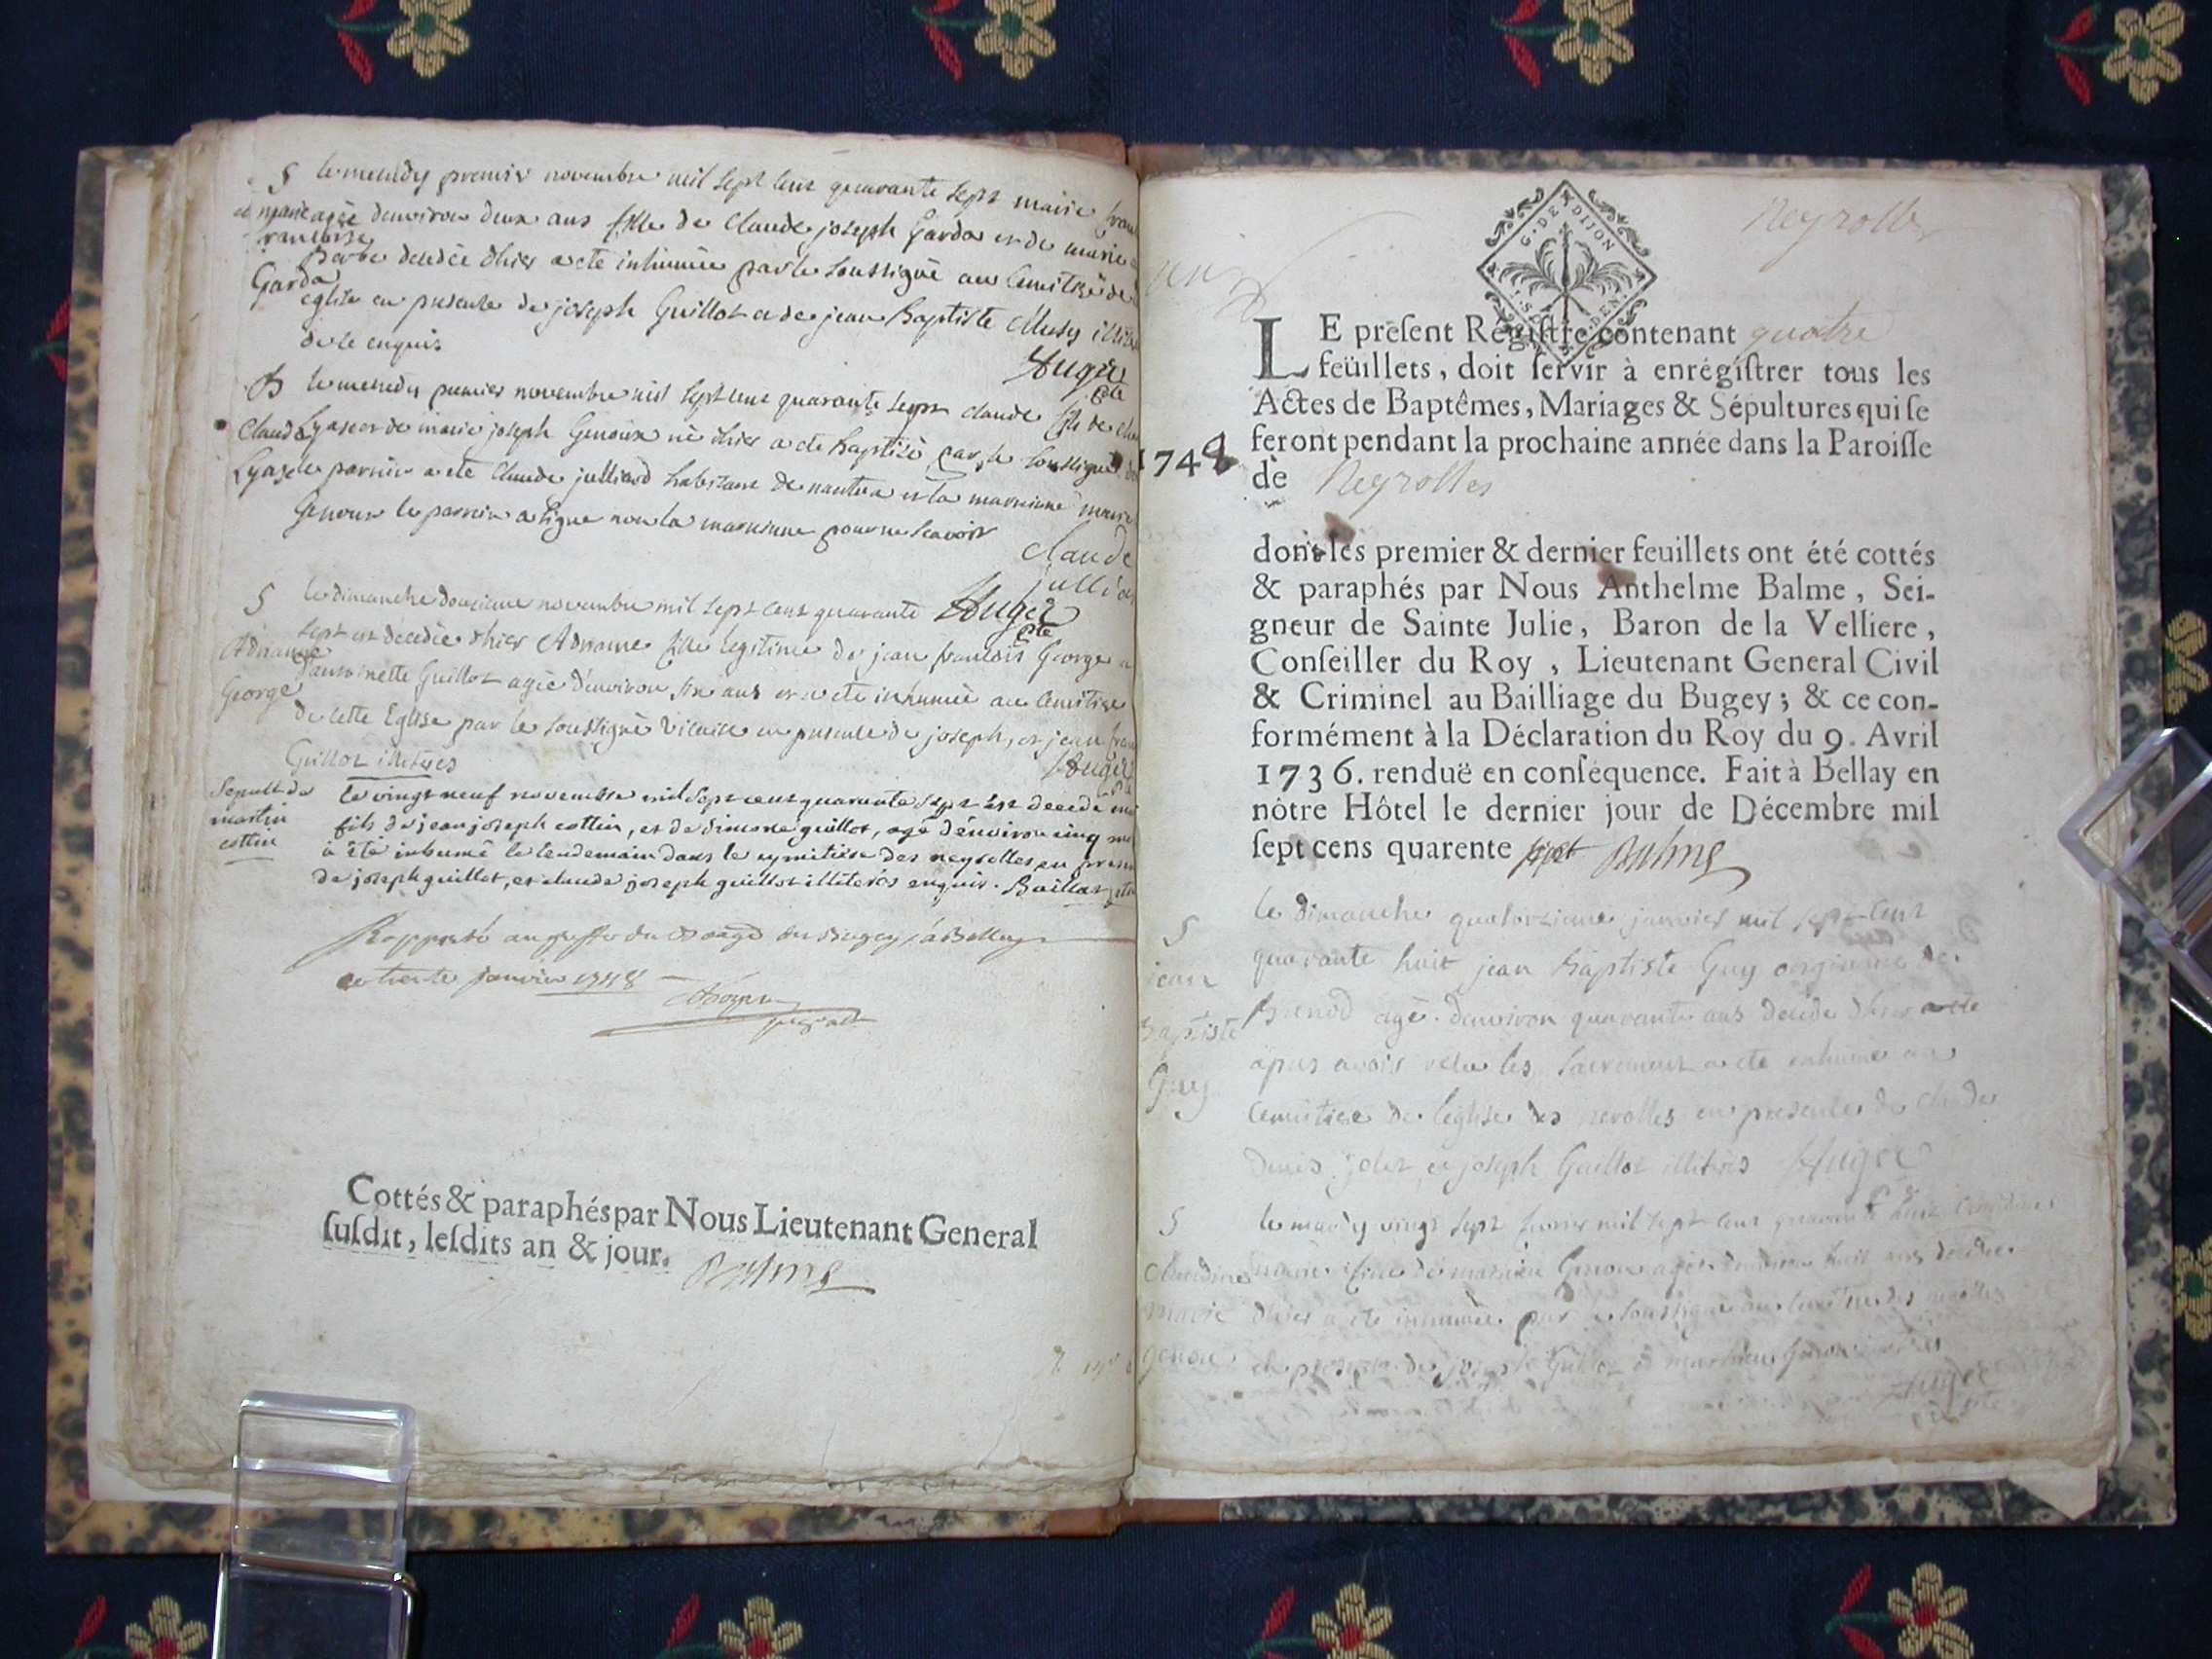 S le mercredy premier novembre mil sept cent quarante sept marie fran
marie agée denviron deux ans fille de Claude joseph Garda et de marie
francoise
decedée dhier a eté inhumée par le soussigné au Cemitiere de
Garda
eglise en presence de joseph Guillot et de jean Baptiste
de ce enquis
Auger
B le mercredy premier novembre mil sept cent quarante sept claude fils de
Claude et de marie joseph Genoux né dhier a eté baptisé par le soussigné
parrin a eté Claude julliard habitant de nantua et la marreinne marie
Genoux le parrein a signé non la marreinne pour ne scavoir
claude
julliar
S le dimanche douzieme novembre mil sept cent quarante Auger
sept est decedée dhier Adrianne fille legitime de jean francois George
Adrianne
antoinette Guillot agée denviron six ans et a eté inhumée au cemitiere
George
de cette Eglise par le soussigné Vicaire en presence de joseph, et jean fran
Guillot illiterés
Auger
Sepult de
martin
cottin
le vingt neuf novembre mil sept cent quarante sept est decedé
fils de jean joseph cottin, et de Simone guillot, agé d'environ cinq
à êté inhumé le lendemain dans le cymitiere des neyrolles en presen
de joseph guillot, et claude joseph guillot illiterés enquis.
Rapporté au greffe du Bugey, à Belley
ce trente janvier 1748
Cottés & paraphés par Nous Lieutenant General
susdit, lesdits an & jour. Balme
Neyrolles
G. DE DIJON
1748
LE présent Régistre contenant quatre
feüillets, doit servir à enrégistrer tous les
Actes de Baptêmes, Mariages & Sépultures qui se
feront pendant la prochaine année dans la Paroisse
de Neyrolles
dont les premier & dernier feuillets ont été cottés
& paraphés par Nous Anthelme Balme, Sei-
gneur de Sainte Julie, Baron de la Velliere,
Conseiller du Roy, Lieutenant General Civil
& Criminel au Bailliage du Bugey; & ce con-
formément à la Déclaration du Roy du 9. Avril
1736. renduë en conséquence. Fait à Bellay en
nôtre Hôtel le dernier jour de Décembre mil
sept cens quarente sept Balme
S
jean
Baptiste
Guy
le dimanche quatorzieme janvier mil sept cent
quarante huit jean Baptiste Guy originaire de
Brenod agé denviron quarante ans decedé dhier
apres avoir recu les sacremens a eté inhumé au
Cemitiere de leglise des nerolles en presence de claude
denis jolet et joseph Guillot illiterés Auger
S
Claudine
marie
genou
le mardy vingt sept fevrier mil sept cent quarante huit Claudine
marie fille de Genou agée denviron huit ans decedée
dhier a eté inhumée par le soussigné au cemitiere des nerolles
en presence de joseph Guillot et Genou
Auger